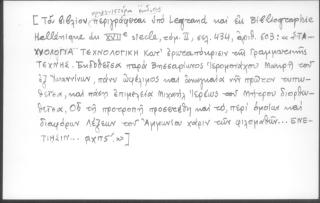 [Τὸ βιβλίον περιγράφεται ὑπὸ Legrand καὶ ἐν Bibliographie
Hellénique du XVIIᵉ siècle, τόμ. II, σελ. 434, ἀριθ. 603: «ΣΤΑ-
ΧΥΟΛΟΓΙΑ ΤΕΧΝΟΛΟΓΙΚΗ Κατ' ἐρωταπόκρισιν τῆς Γραμματικῆς
ΤΕΧΝΗΣ. Ἐκδοθεῖσα παρὰ Βησσαρίωνος Ἱερομονάχου Μακρῆ τοῦ
ἐξ Ἰωαννίνων, πάνυ ὠφέλιμος καὶ ἀναγκαία νῦν πρῶτον τυπω-
θεῖσα, καὶ πάσῃ ἐπιμελείᾳ Μιχαὴλ Ἱερέως τοῦ Μήτρου διορθω-
θεῖσα. Οὗ τῇ προτροπῇ προσετέθη καὶ τό, περὶ ὁμοίων καὶ
διαφόρων λέξεων τοῦ Ἀμμωνίου χάριν τῶν φιλομαθῶν... ΕΝΕ-
ΤΙΗΣΙΝ... ͵αχπϛʹ.»]